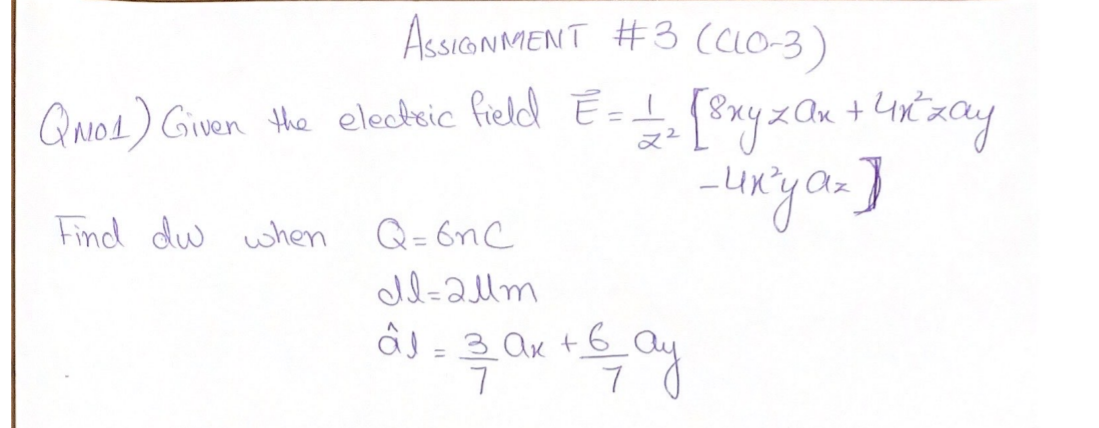 ASSIGNMENT #3 (CLO-3)
QNO1) Given the electric field E⃗ = 1/z² [8xyz ax + 4x²z ay
-4x²y az]
Find dw when Q=6nC
dl=2Mm
âl = 3/7 ax + 6/7 ay